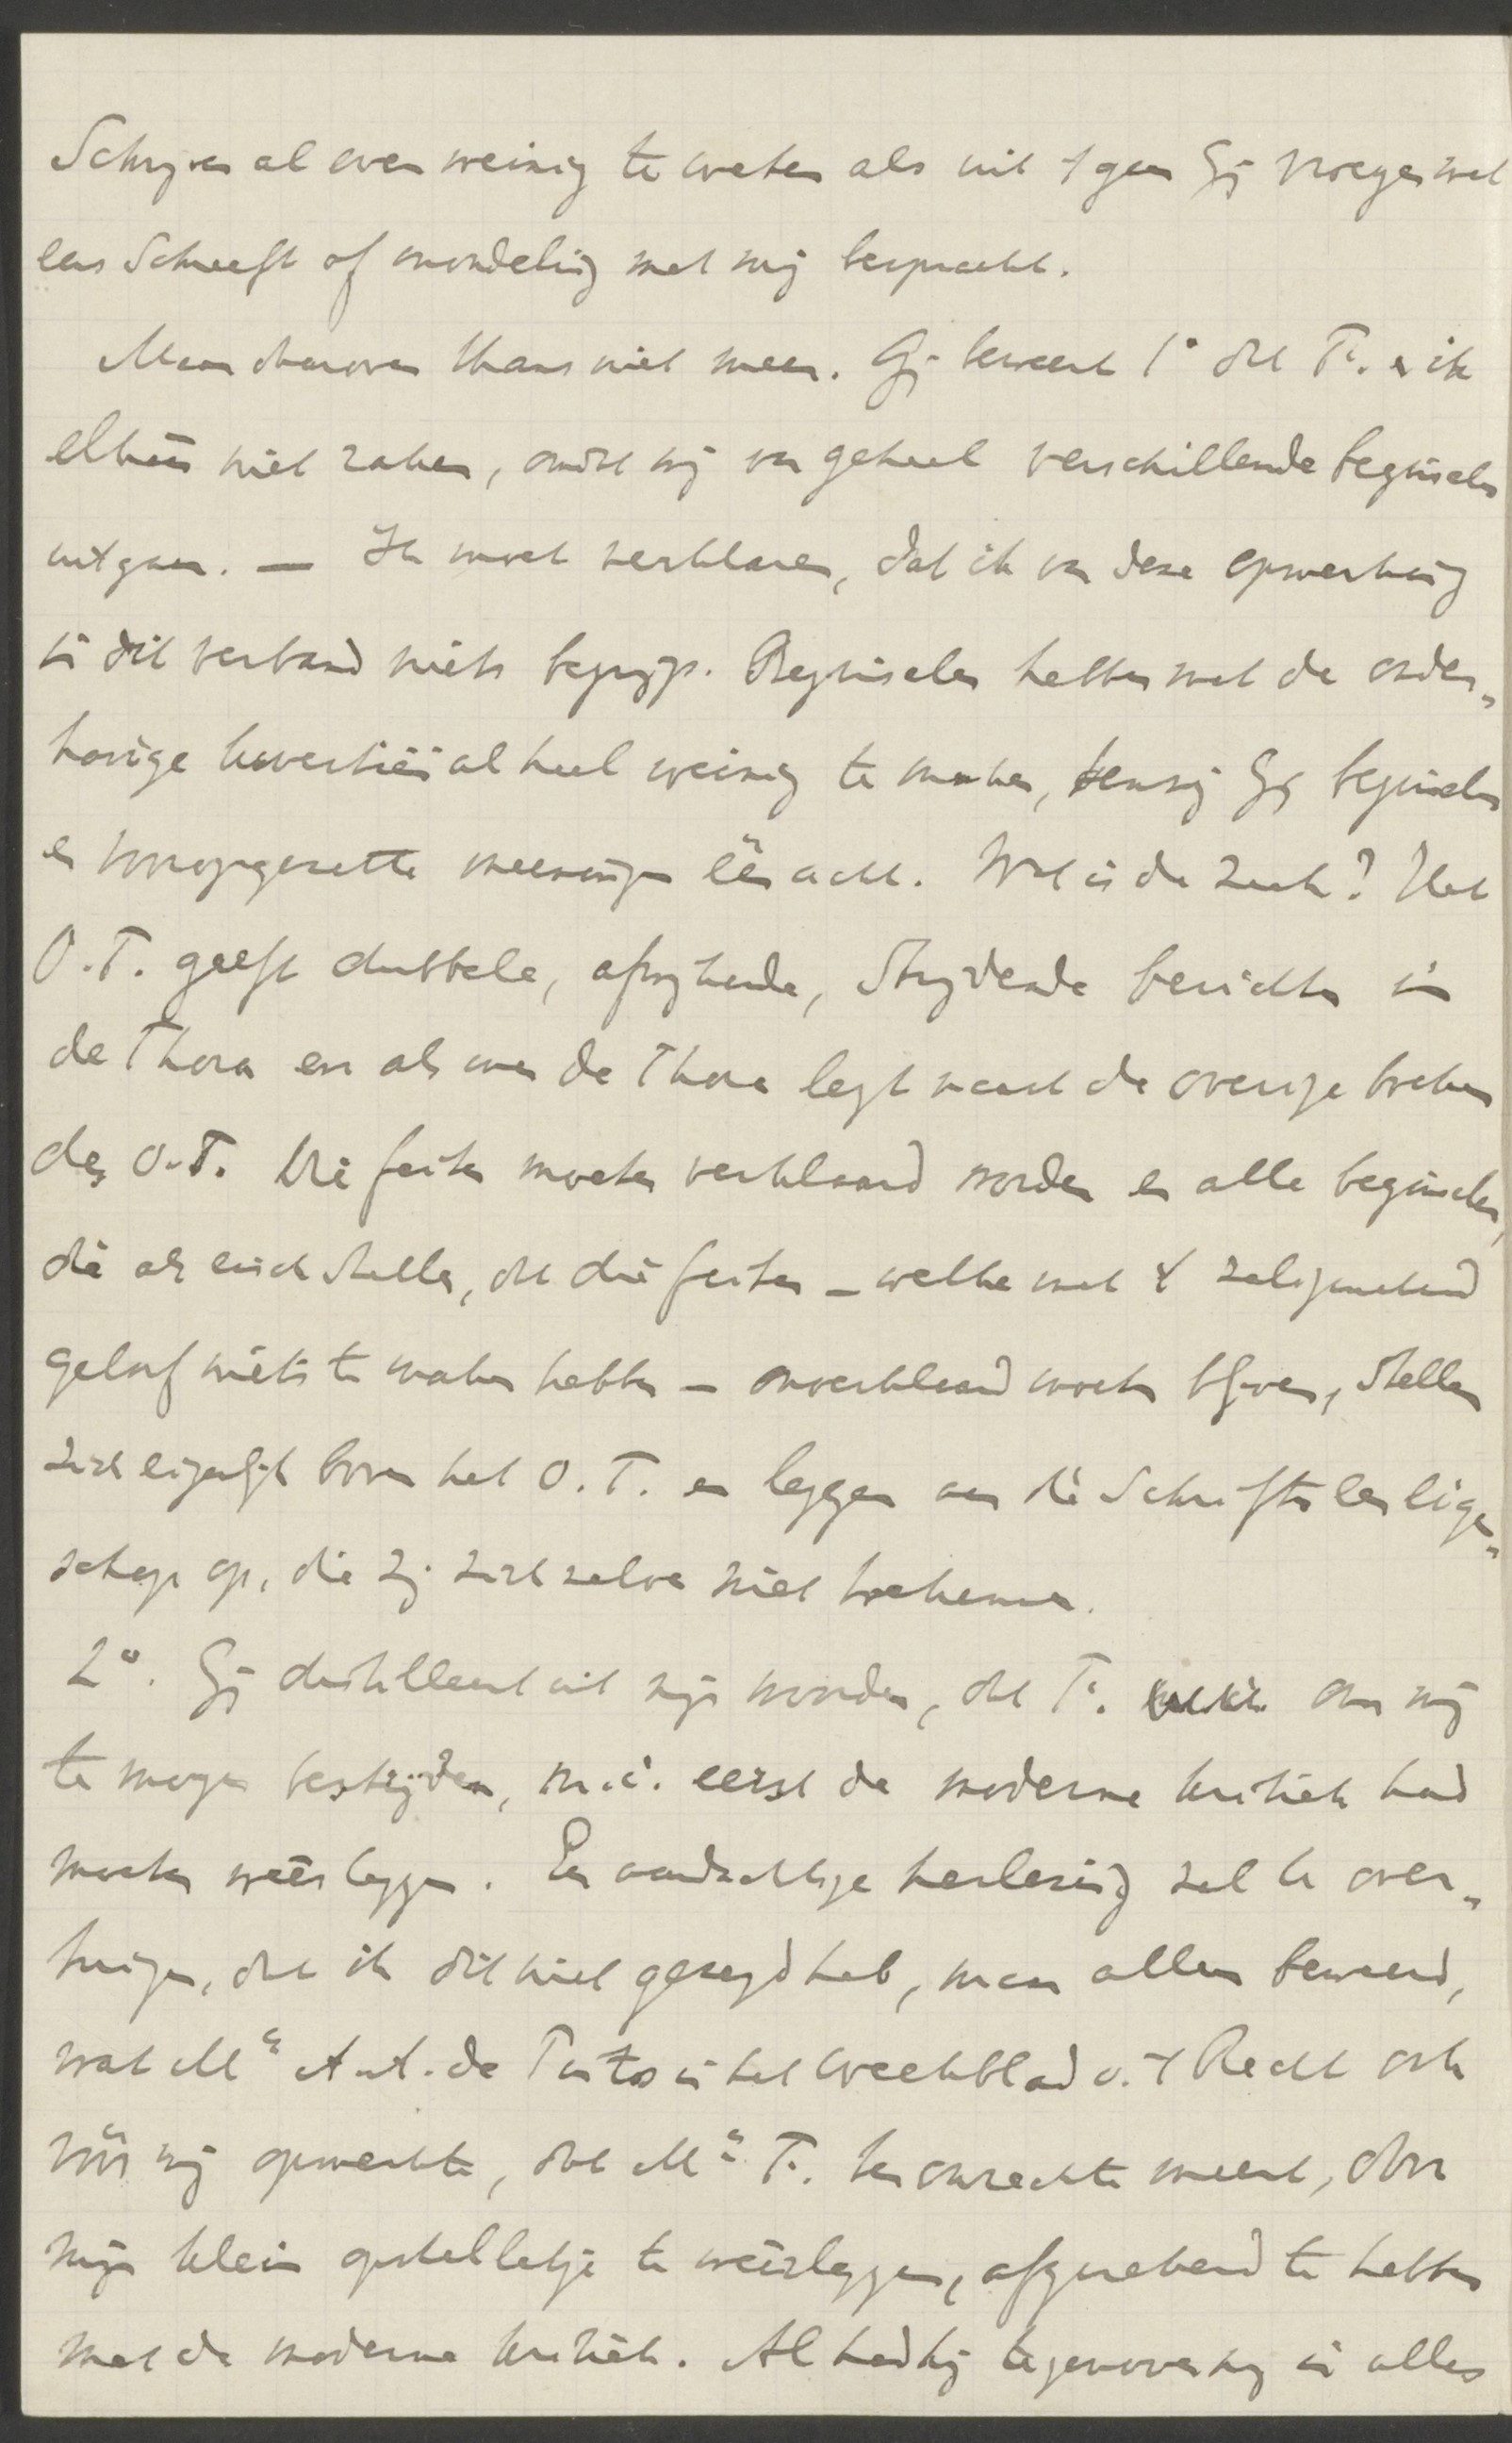 Schrijven al even weinig te weten als uit 't geen Gij vroeger wel
eens schreeft of mondeling met mij bespraakt.
Maar daarover thans niet meer. Gij beweert 1° dat Ts. en ik
elkaar niet raken, omdat wij van geheel verschillende beginselen
uitgaan. — Ik moet verklaren, dat ik van deze opmerking
in dit verband niets begrijp. Beginselen hebben met de onder„
havige kwestiën al heel weinig te maken, tenzij Gij beginselen
en vooropgezette meeningen één acht. Wat is de zaak? Het
O.T. geeft dubbele, afwijkende, strijdende berichten in
de Thora en als men de Thora legt naast de overige boeken
des O.T. Die feiten moeten verklaard worden en alle beginselen,
die als eisch stellen, dat die feiten – welke met 't zaligmakend
geloof niets te maken hebben – onverklaard moeten blijven, stellen
zich eigenlijk boven het O.T. en leggen aan die Schriften een eigen„
schap op, die zij zich zelve niet toekennen.
2°. Gij destilleert uit mijn woorden, dat Ts. om mij
te mogen bestrijden, m.i. eerst de moderne kritiek had
moeten weêrleggen. Een aandachtige herlezing zal U over„
tuigen, dat ik dit niet gezegd heb, maar alleen beweerd,
wat Mr A.A. de Pinto in het Weekblad v. 't Recht ook
vóór mij opmerkte, dat Mr T. ten onrechte meent, door
mijn klein opstelletje te weêrleggen, afgerekend te hebben
met de moderne kritiek. Al had hij tegenover mij in alles